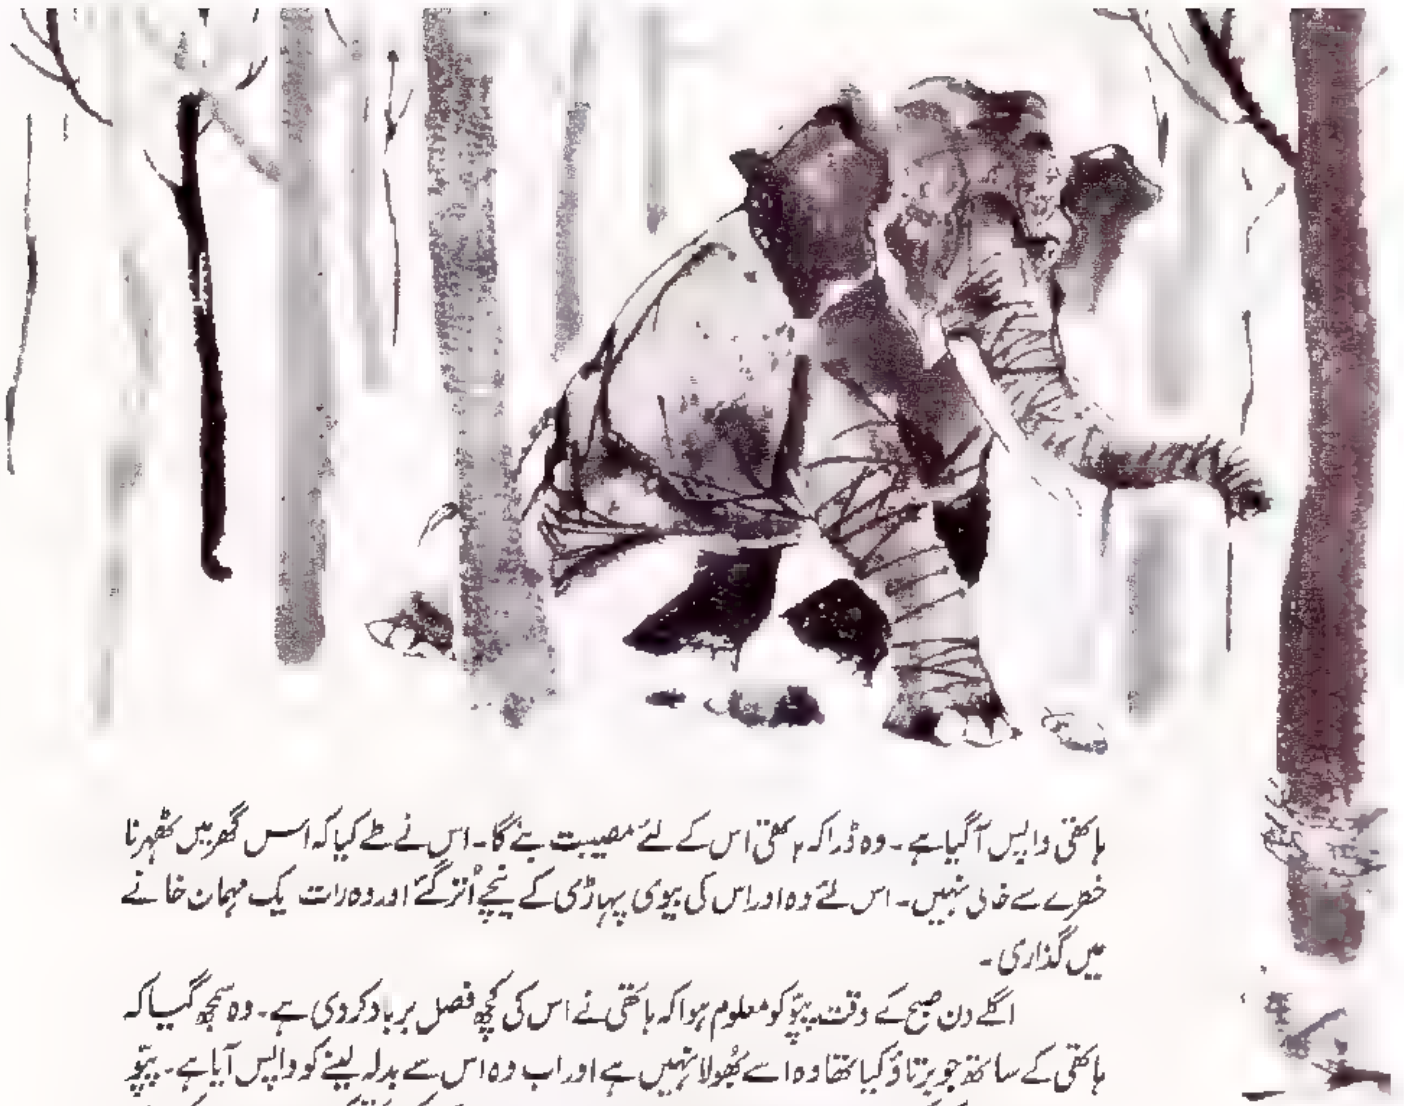 ہاتھی واپس آگیا ہے۔ وہ ڈرا کہ ہاتھی اس کے لئے مصیبت بنے گا۔ اس نے طے کیا کہ اس گھر میں ٹھہرنا
خطرے سے خالی نہیں۔ اس لئے وہ اور اس کی بیوی پہاڑی کے نیچے اُتر گئے اور وہ رات یک مہمان خانے
میں گذاری۔
اگلے دن صبح کے وقت پپّو کو معلوم ہوا کہ ہاتھی نے اس کی کچھ فصل برباد کردی ہے۔ وہ سمجھ گیا کہ
ہاتھی کے ساتھ جو برتاؤ کیا تھا وہ اسے بُھولا نہیں ہے اور اب وہ اس سے بدلہ لینے کو واپس آیا ہے۔ پپّو